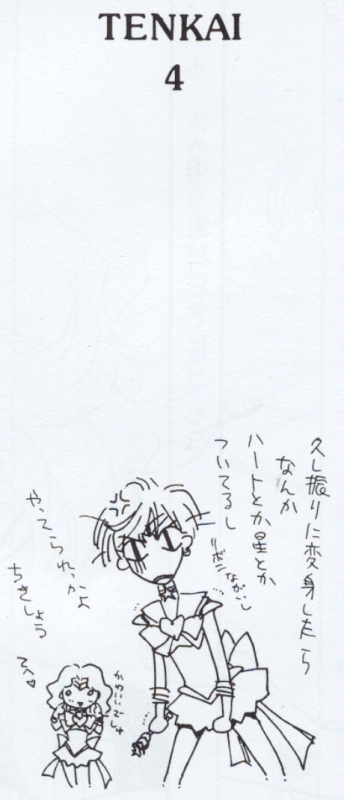 TENKAI
4
久し振りに変身したら
なんか
ハートとか星とか
ついてるし
リボンながいし
やってられっかよ
ちきしょう
てへ♡